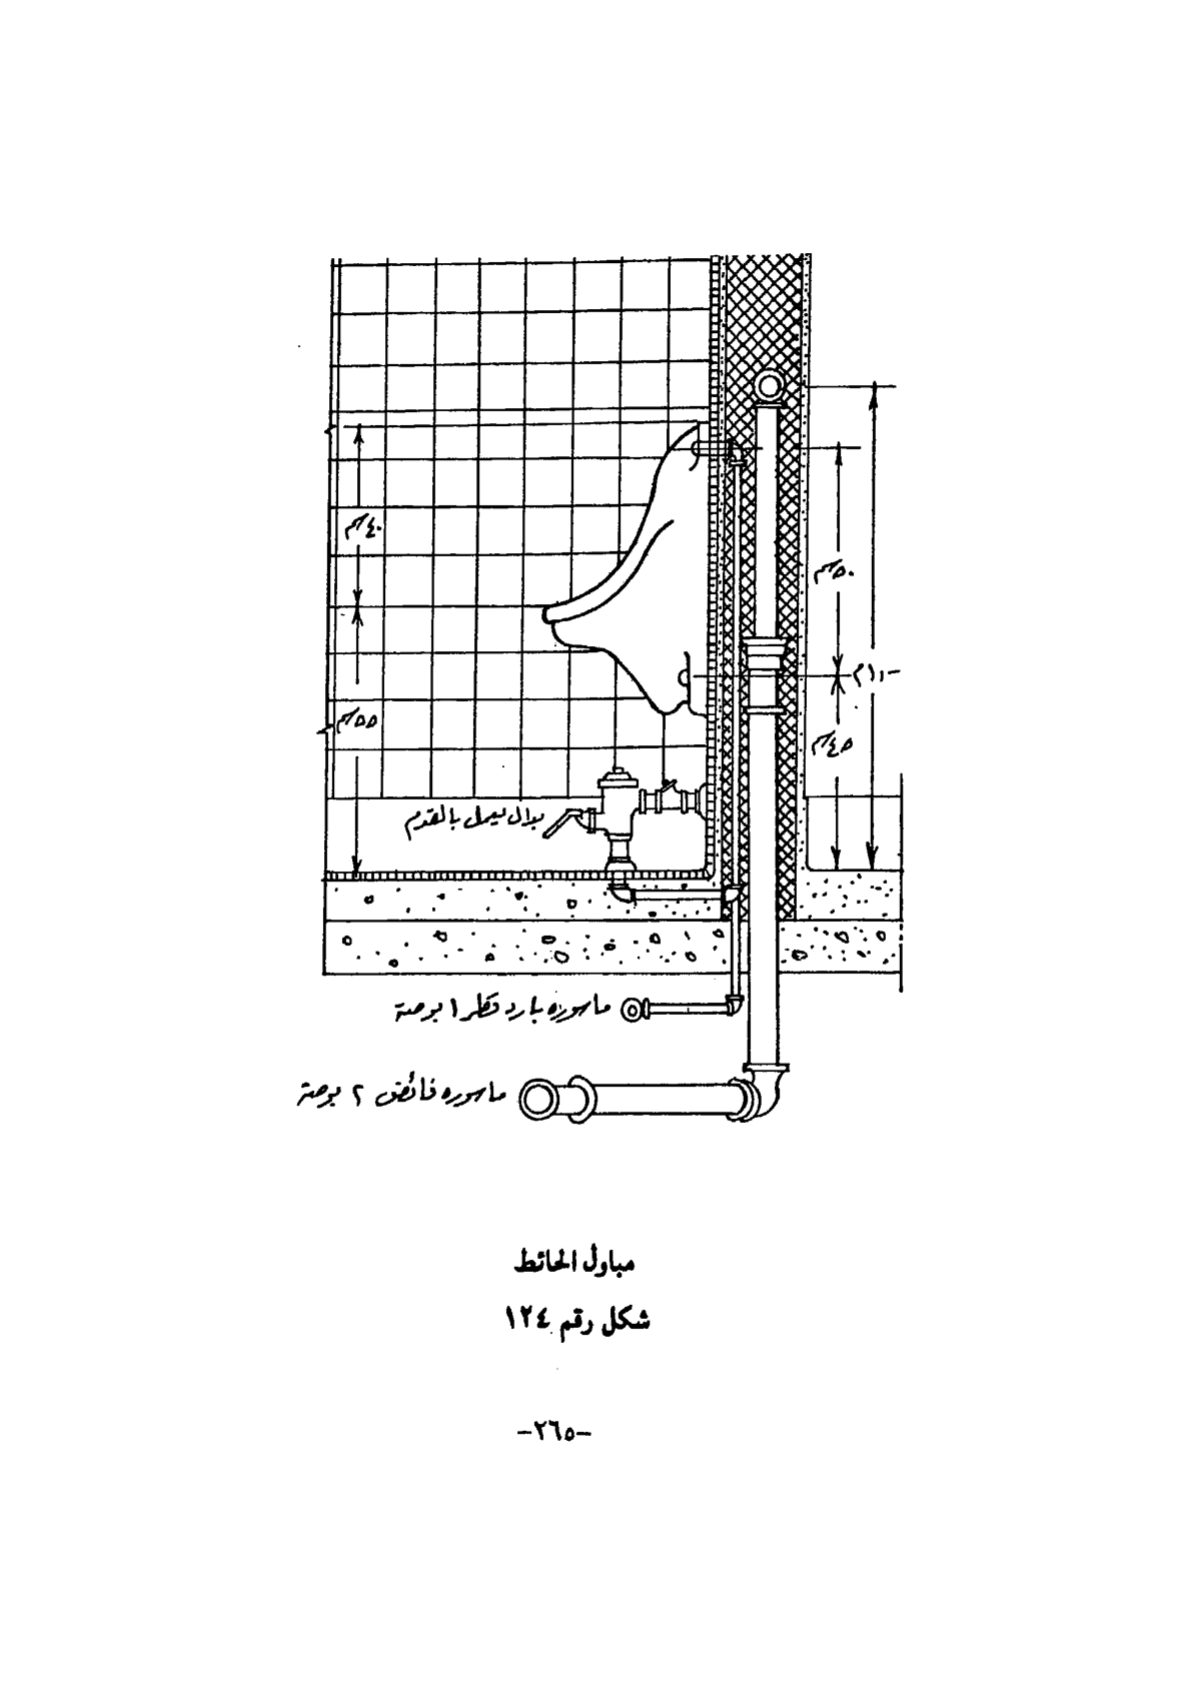 ٤٠سم
٥٠سم
١,١٠م
٥٥سم
٤٥سم
بدال يعمل بالقدم
ماسوره بارد قطر ١ بوصة
ماسوره فائض ٢ بوصة
مباول الحائط
شكل رقم ١٢٤
-٢٦٥-